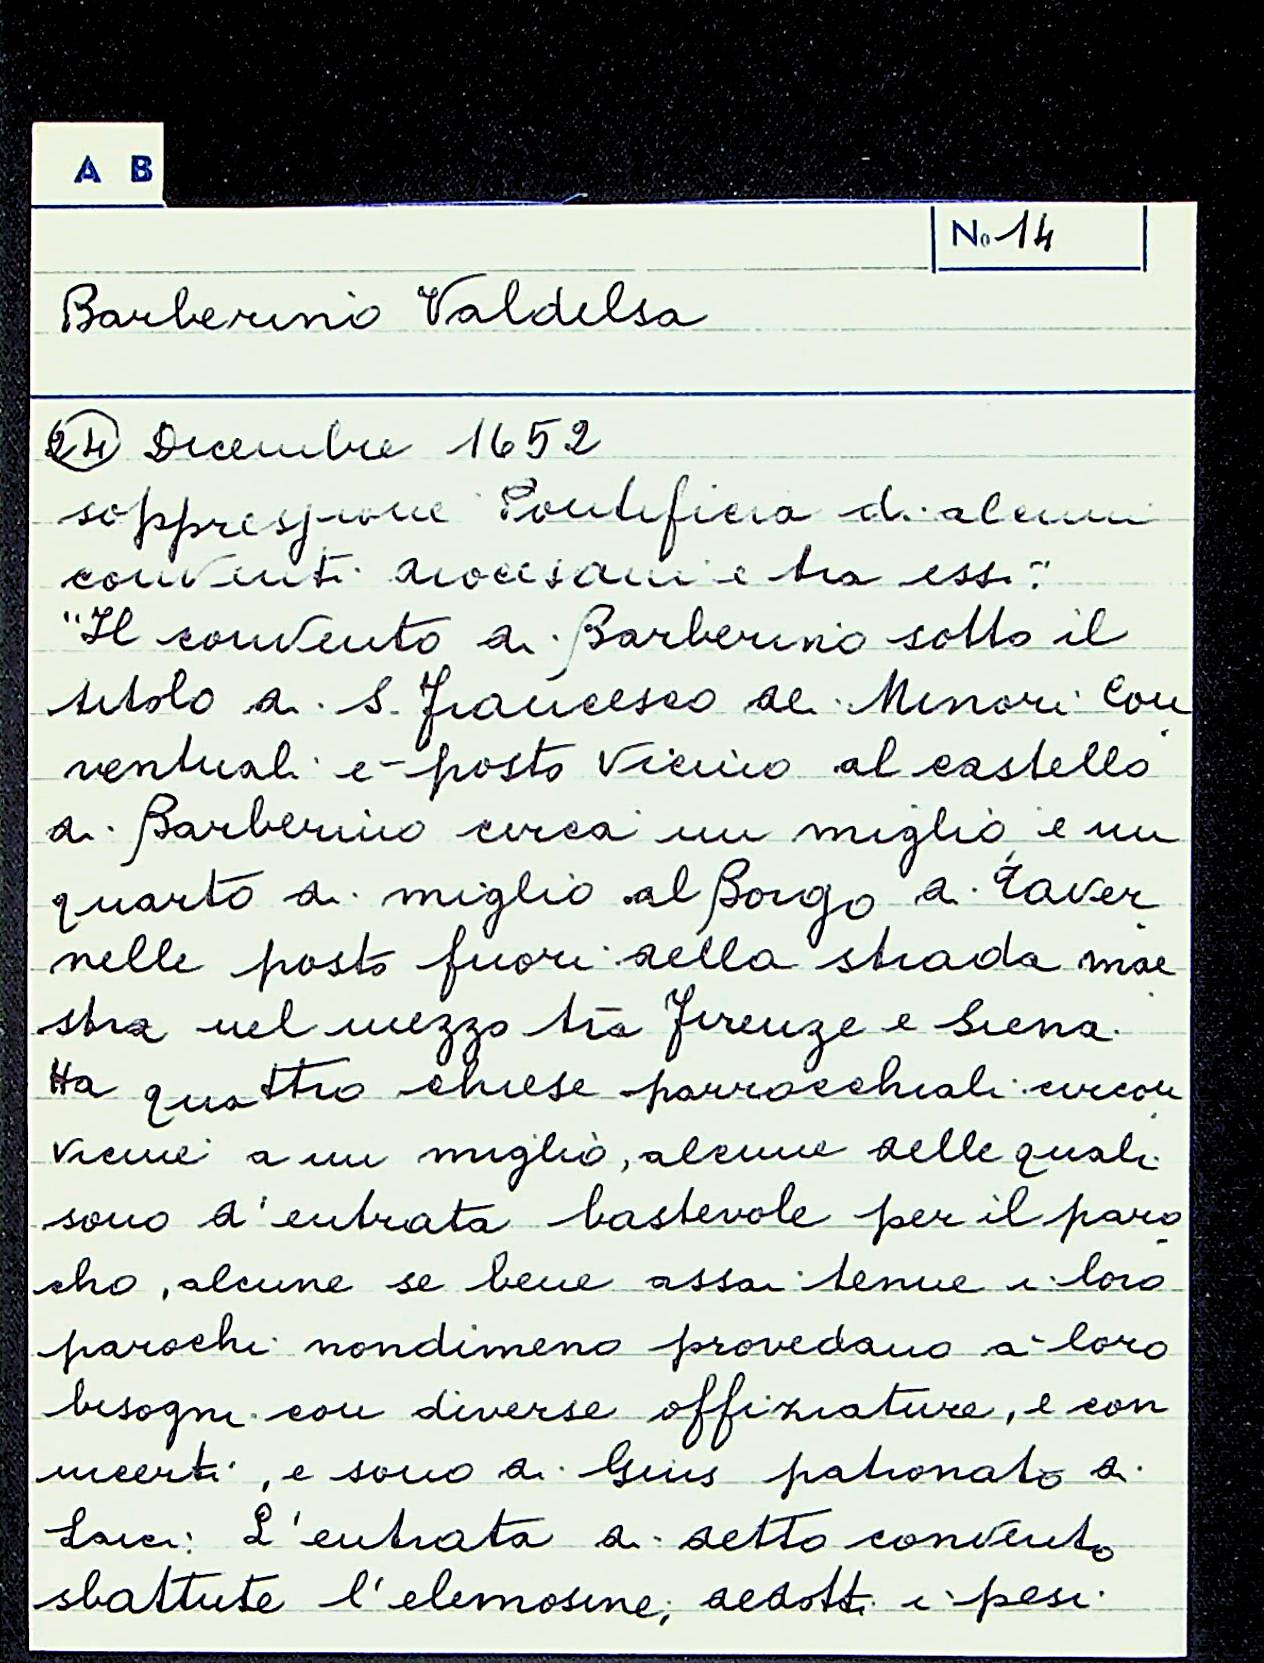 A B
No 14
Barberino Valdelsa
24 Dicembre 1652
soppressione Pontificia di alcuni
conventi diocesani e tra essi:
"Il convento di Barberino sotto il
titolo di S. Francesco de Minori Con
ventuali e posto vicino al castello
di Barberino circa un miglio, e un
quarto di miglio al Borgo di Taver
nelle posto fuori della strada mae
stra nel mezzo tra Firenze e Siena.
Ha quattro chiese parrocchiali circon
vicine a un miglio, alcune delle quali
sono d'entrata bastevole per il paro
cho, alcune se bene assai tenue i loro
parochi nondimeno provedano a loro
bisogni con diverse offiziature, e con
incerti, e sono di Gius patronato di
Laici: L'entrata di detto convento
sbattute l'elemosine, dedotti i pesi